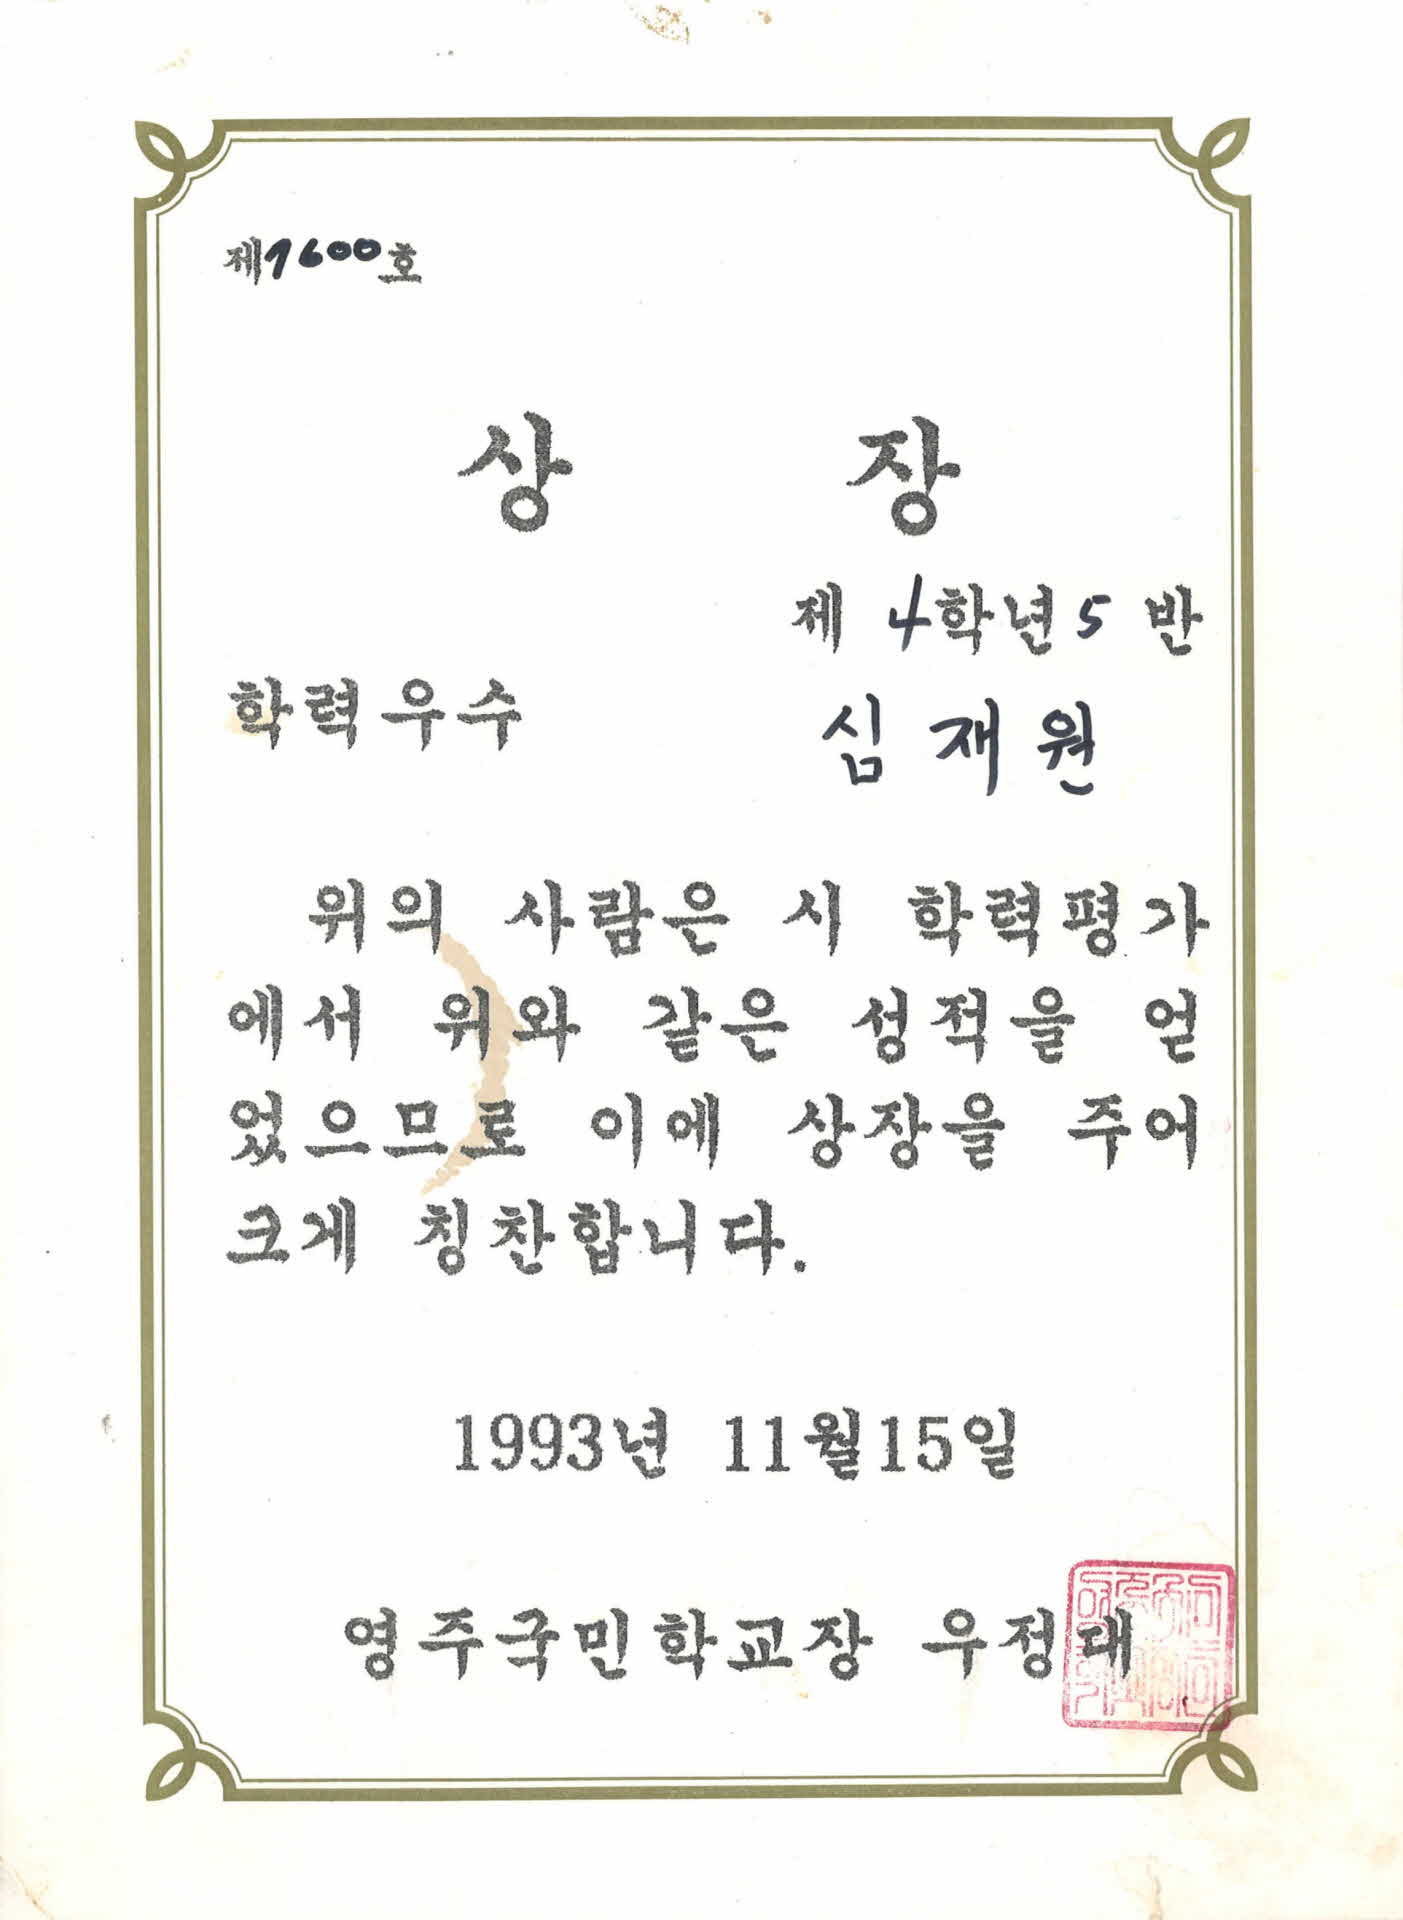 제1600호
상 장
제 4학년 5 반
학력우수
심재원
위의 사람은 시 학력평가
에서 위와 같은 성적을 얻
었으므로 이에 상장을 주어
크게 칭찬합니다.
1993년 11월15일
영주국민학교장 우정대